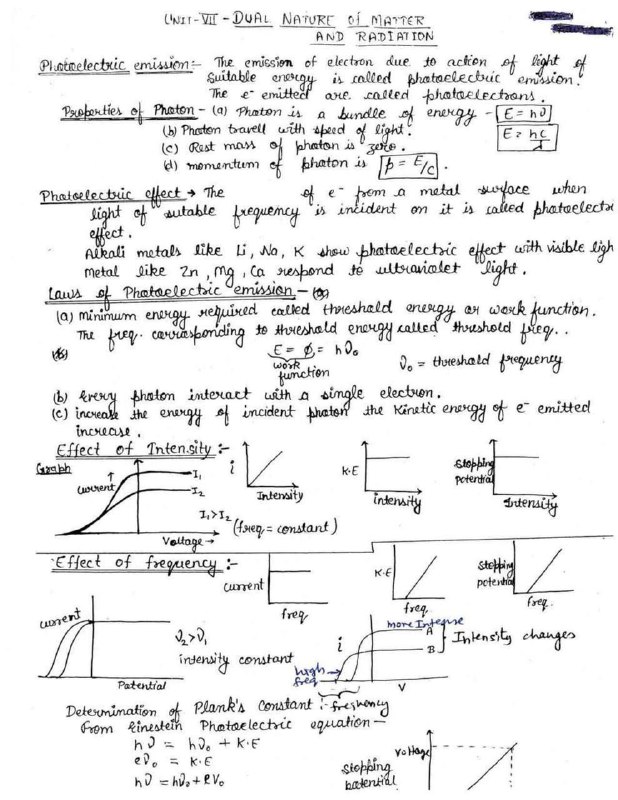 UNIT-VII - DUAL NATURE OF MATTER
AND RADIATION
Photoelectric emission:- The emission of electron due to action of light of
suitable energy is called photoelectric emission.
The e⁻ emitted are called photoelectrons.
Properties of Photon - (a) Photon is a bundle of energy - E = hν
(b) Photon travell with speed of light. E = hc/λ
(c) Rest mass of photon is zero.
(d) momentum of photon is p = E/c.
Photoelectric effect → The of e⁻ from a metal surface when
light of sutable frequency is incident on it is called photoelectri
effect.
Alkali metals like Li, Na, K show photoelectric effect with visible ligh
Metal like Zn, Mg, Ca respond to ultraviolet light.
Laws of Photoelectric emission -
(a) minimum energy required called threshold energy or work function.
The freq. corrosponding to threshold energy called threshold freq..
E = φ₀ = hν₀
work function
ν₀ = threshold frequency
(b) Every photon interact with a single electron.
(c) increase the energy of incident photon the Kinetic energy of e⁻ emitted
increase.
Effect of Intensity :-
Graph
current
I₁
I₂
I₁>I₂
Voltage →
i
Intensity
(freq = constant)
K·E
intensity
stopping
potential
Intensity
Effect of frequency :-
current
freq.
K·E
freq
stopping
potential
freq.
current
ν₂>ν₁
intensity constant
Potential
i
more Intense
A
B
Intensity changes
high
freq
V
frequency
Determination of Plank's Constant :-
From Einestein Photoelectric equation -
hν = hν₀ + K·E
eν₀ = K·E
hν = hν₀ + eV₀
stopping
potential
voltage